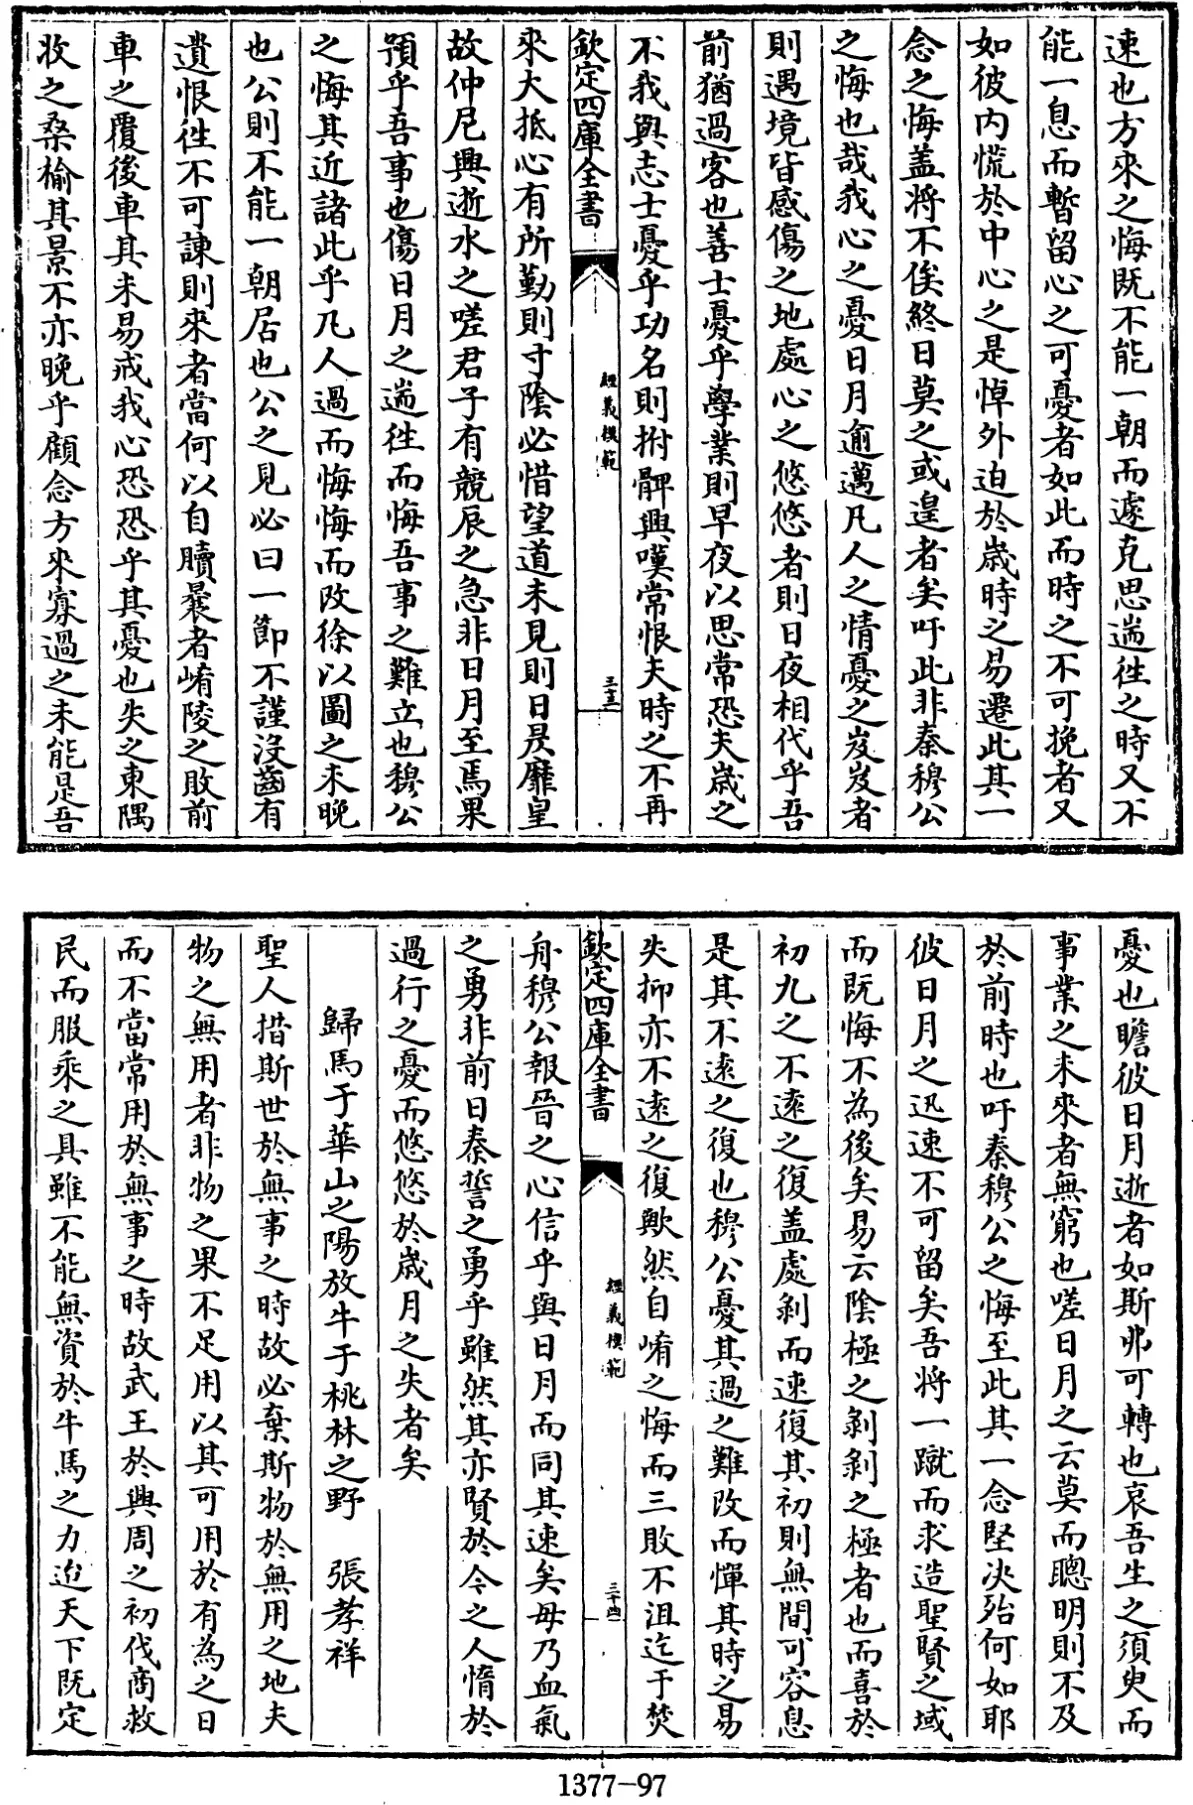 速也方來之悔既不能一朝而遽克思遄徃之時又不
能一息而暫留心之可憂者如此而時之不可挽者又
如彼内慌於中心之是悼外迫於歳時之易遷此其一
念之悔盖將不俟終日莫之或遑者矣吁此非秦穆公
之悔也哉我心之憂日月逾邁凡人之情憂之岌岌者
則遇境皆感傷之地處心之悠悠者則日夜相代乎吾
前猶過客也善士憂乎學業則早夜以思常恐夫歳之
不我與志士憂乎功名則拊髀興嘆常恨夫時之不再
欽定四庫全書
經義模範
三十三
來大抵心有所勤則寸陰必惜望道未見則日昃靡皇
故仲尼興逝水之嗟君子有競辰之急非日月至焉果
預乎吾事也傷日月之遄徃而悔吾事之難立也穆公
之悔其近諸此乎凡人過而悔悔而改徐以圖之未晚
也公則不能一朝居也公之見必曰一節不謹沒齒有
遺恨徃不可諫則來者當何以自贖曩者崤陵之敗前
車之覆後車其未易戒我心恐恐乎其憂也失之東隅
收之桑榆其景不亦晚乎顧念方來寡過之未能是吾
憂也瞻彼日月逝者如斯弗可轉也哀吾生之須臾而
事業之未來者無窮也嗟日月之云莫而聰明則不及
於前時也吁秦穆公之悔至此其一念堅决殆何如耶
彼日月之迅速不可留矣吾將一蹴而求造聖賢之域
而既悔不為後矣易云陰極之剥剥之極者也而喜於
初九之不逺之復盖處剥而速復其初則無間可容息
是其不逺之復也穆公憂其過之難改而憚其時之易
失抑亦不逺之復歟然自崤之悔而三敗不沮迄于焚
欽定四庫全書
經義模範
三十四
舟穆公報晉之心信乎與日月而同其速矣毋乃血氣
之勇非前日秦誓之勇乎雖然其亦賢於今之人惰於
過行之憂而悠悠於歳月之失者矣
歸馬于華山之陽放牛于桃林之野　張孝祥
聖人措斯世於無事之時故必棄斯物於無用之地夫
物之無用者非物之果不足用以其可用於有為之日
而不當常用於無事之時故武王於興周之初伐商救
民而服乘之具雖不能無資於牛馬之力迨天下既定
1377-97